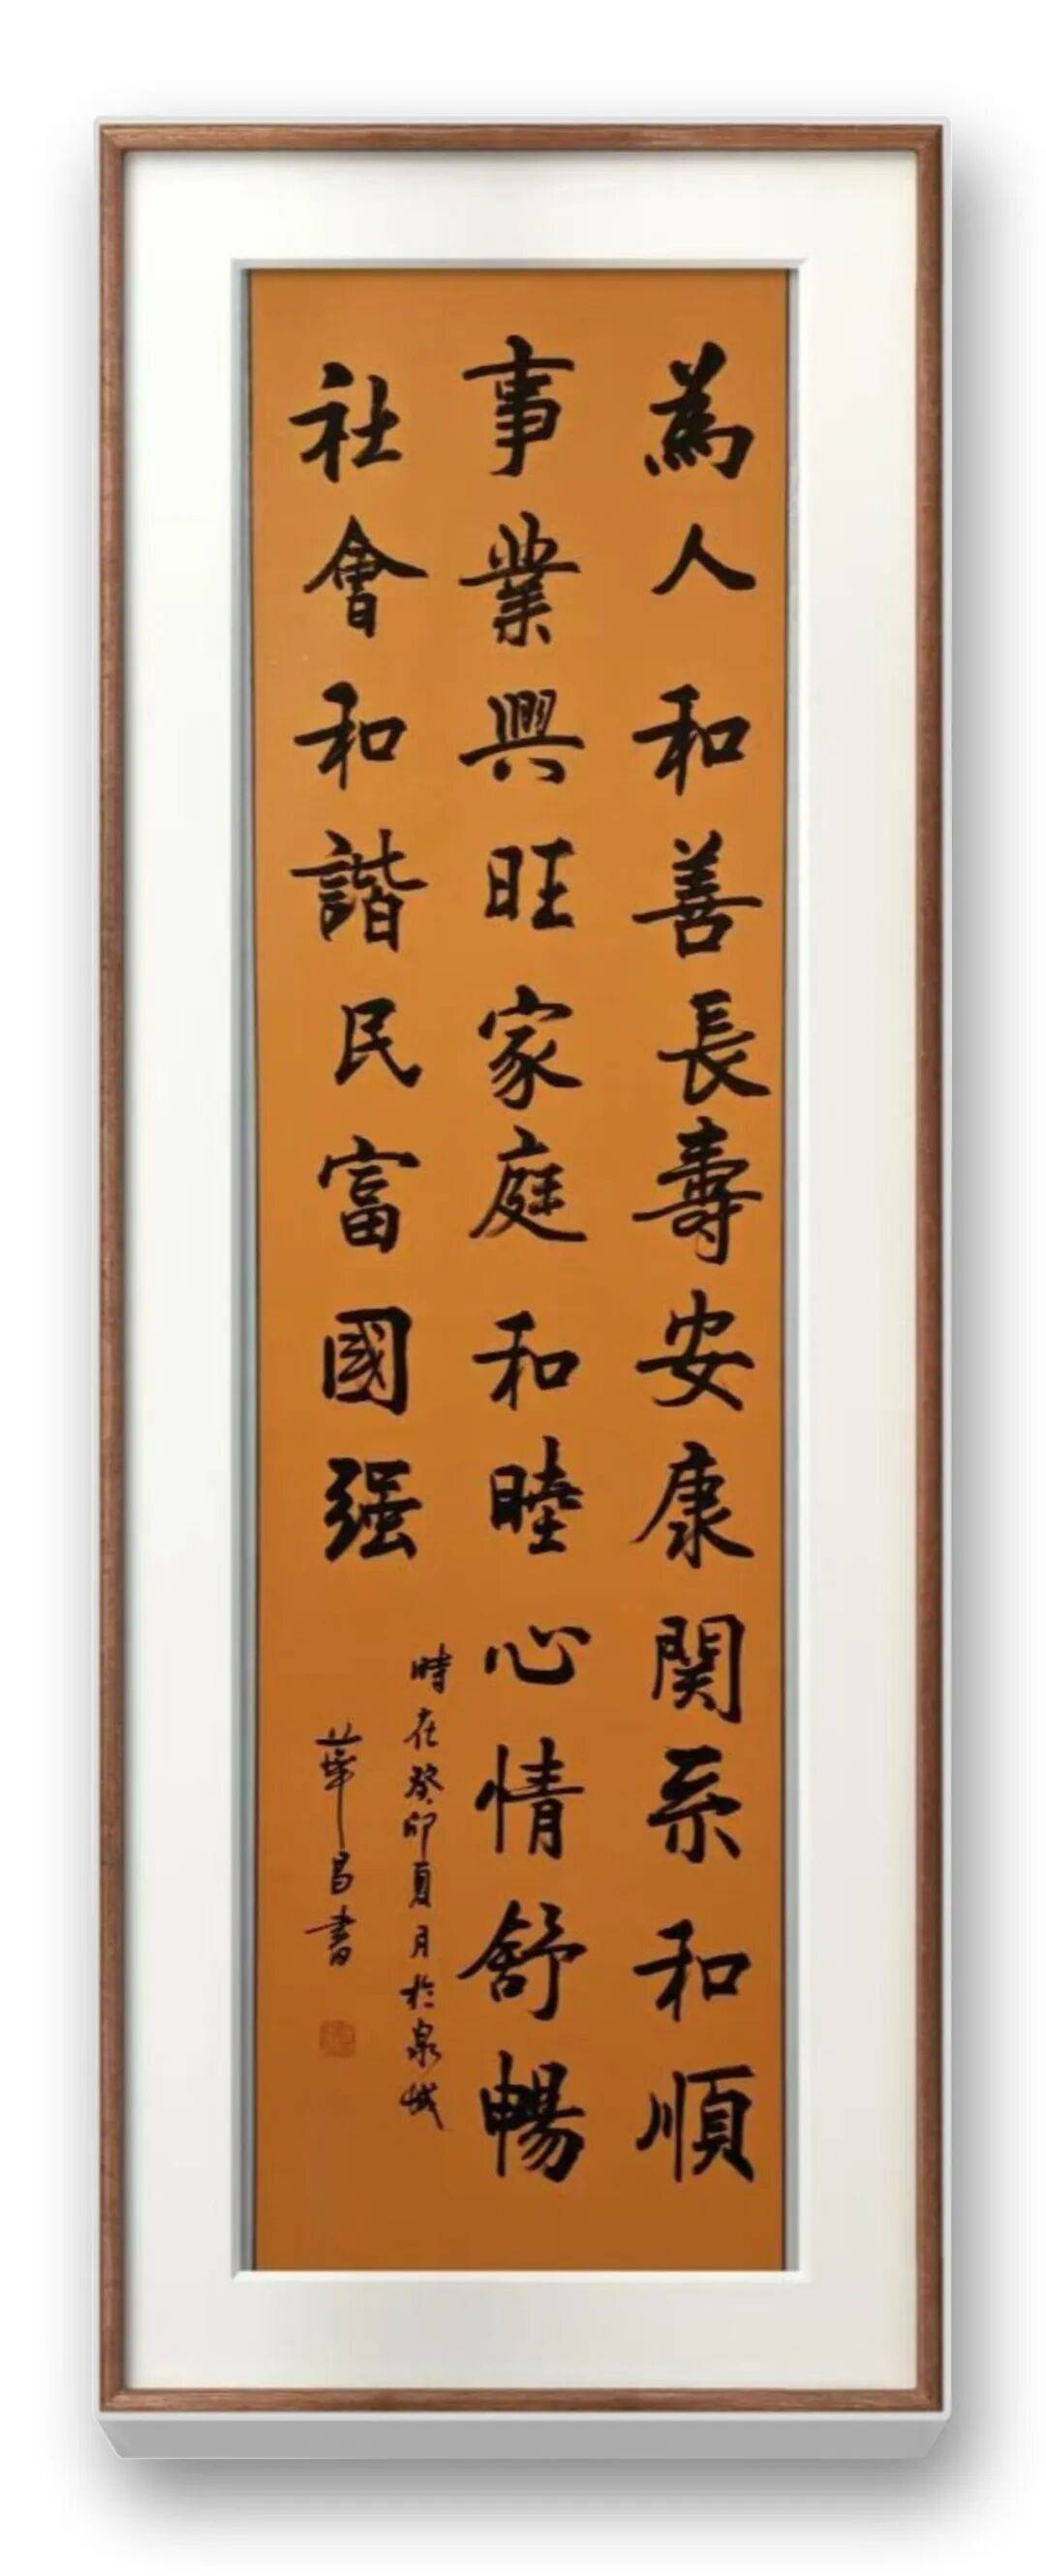 為人和善長壽安康関系和順
事業興旺家庭和睦心情舒暢
社會和諧民富國强
時在癸卯夏月於泉城
華昌書